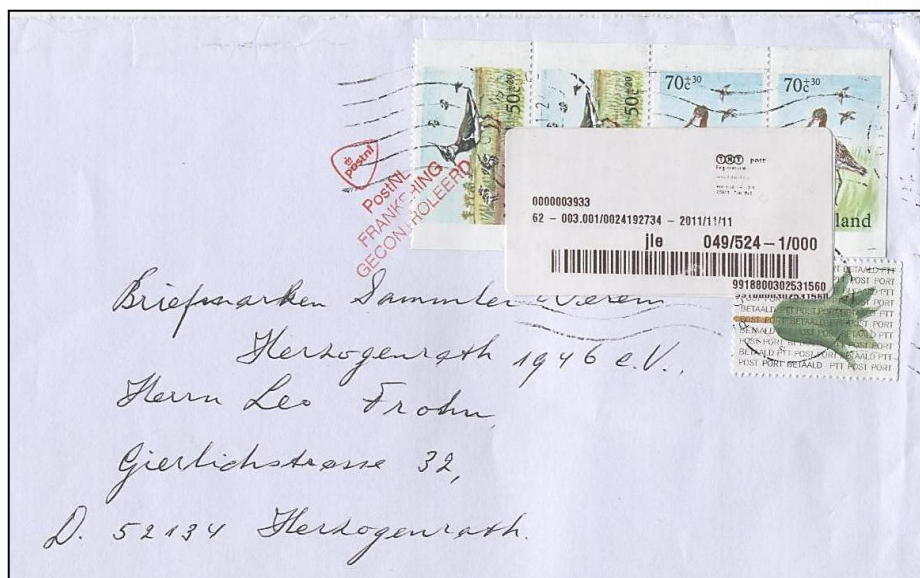 50c+30
50c+30
70c+30
70c+30
land
postnl
PostNL
FRANKERING
GECONTROLEERD
TNT post
0000003933
62 - 003.001/0024192734 - 2011/11/11
jle 049/524-1/000
9918800302531560
9918800302531560
BETAALD PTT POST PORT
Briefmarken Sammler Verein
Herzogenrath 1946 e.V.,
Herrn Leo Frohn,
Gierlichstrasse 32,
D. 52134 Herzogenrath.